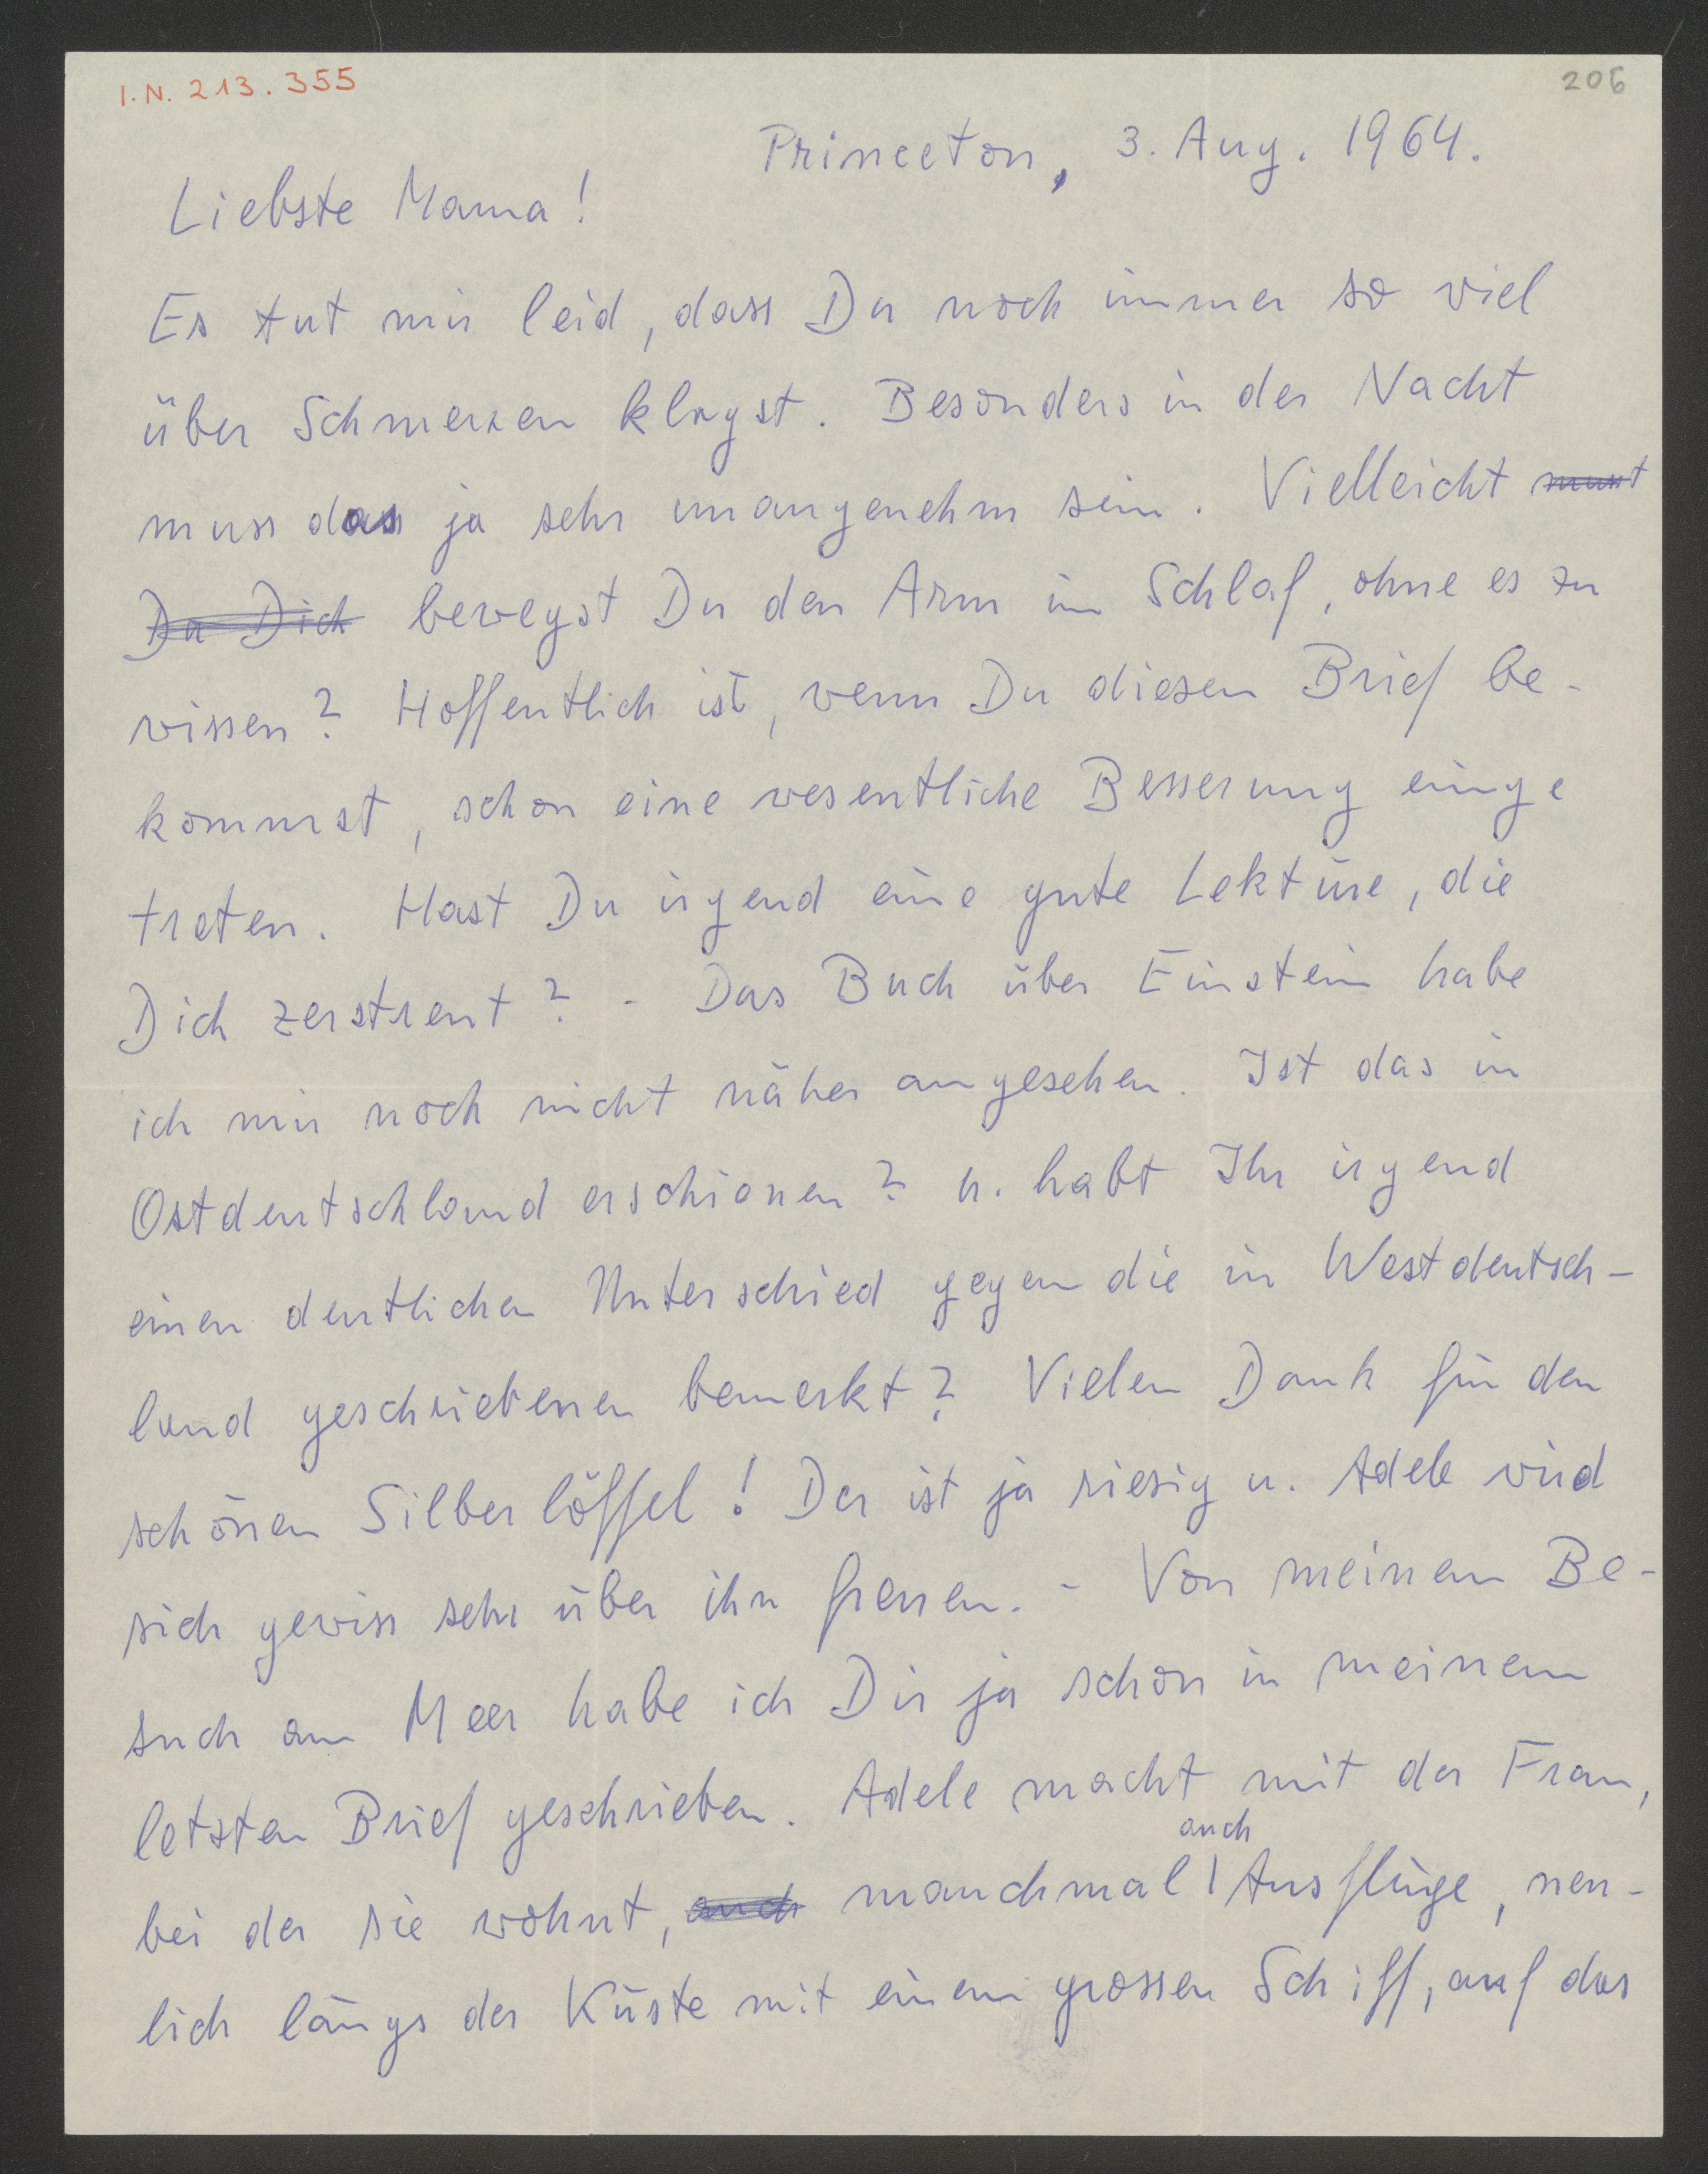 I.N. 213.355
206
Princeton, 3. Aug. 1964.
Liebste Mama!
Es tut mir leid, dass Du noch immer so viel
über Schmerzen klagst. Besonders in der Nacht
muss das ja sehr unangenehm sein. Vielleicht
Du Dich bewegst Du den Arm im Schlaf, ohne es zu
wissen? Hoffentlich ist, wenn Du diesen Brief be-
kommst, schon eine wesentliche Besserung einge
treten. Hast Du irgend eine gute Lektüre, die
Dich zerstreut? - Das Buch über Einstein habe
ich mir noch nicht näher angesehen. Ist das in
Ostdeutschland erschienen? u. habt Ihr irgend
einen deutlichen Unterschied gegen die in Westdeutsch-
land geschriebenen bemerkt? Vielen Dank für den
schönen Silberlöffel! Der ist ja riesig u. Adele wird
sich gewiss sehr über ihn freuen. - Von meinem Be-
such am Meer habe ich Dir ja schon in meinem
letzten Brief geschrieben. Adele macht mit der Frau,
bei der sie wohnt, auch manchmal auch Ausflüge, neu-
lich längs der Küste mit einem grossen Schiff, auf das